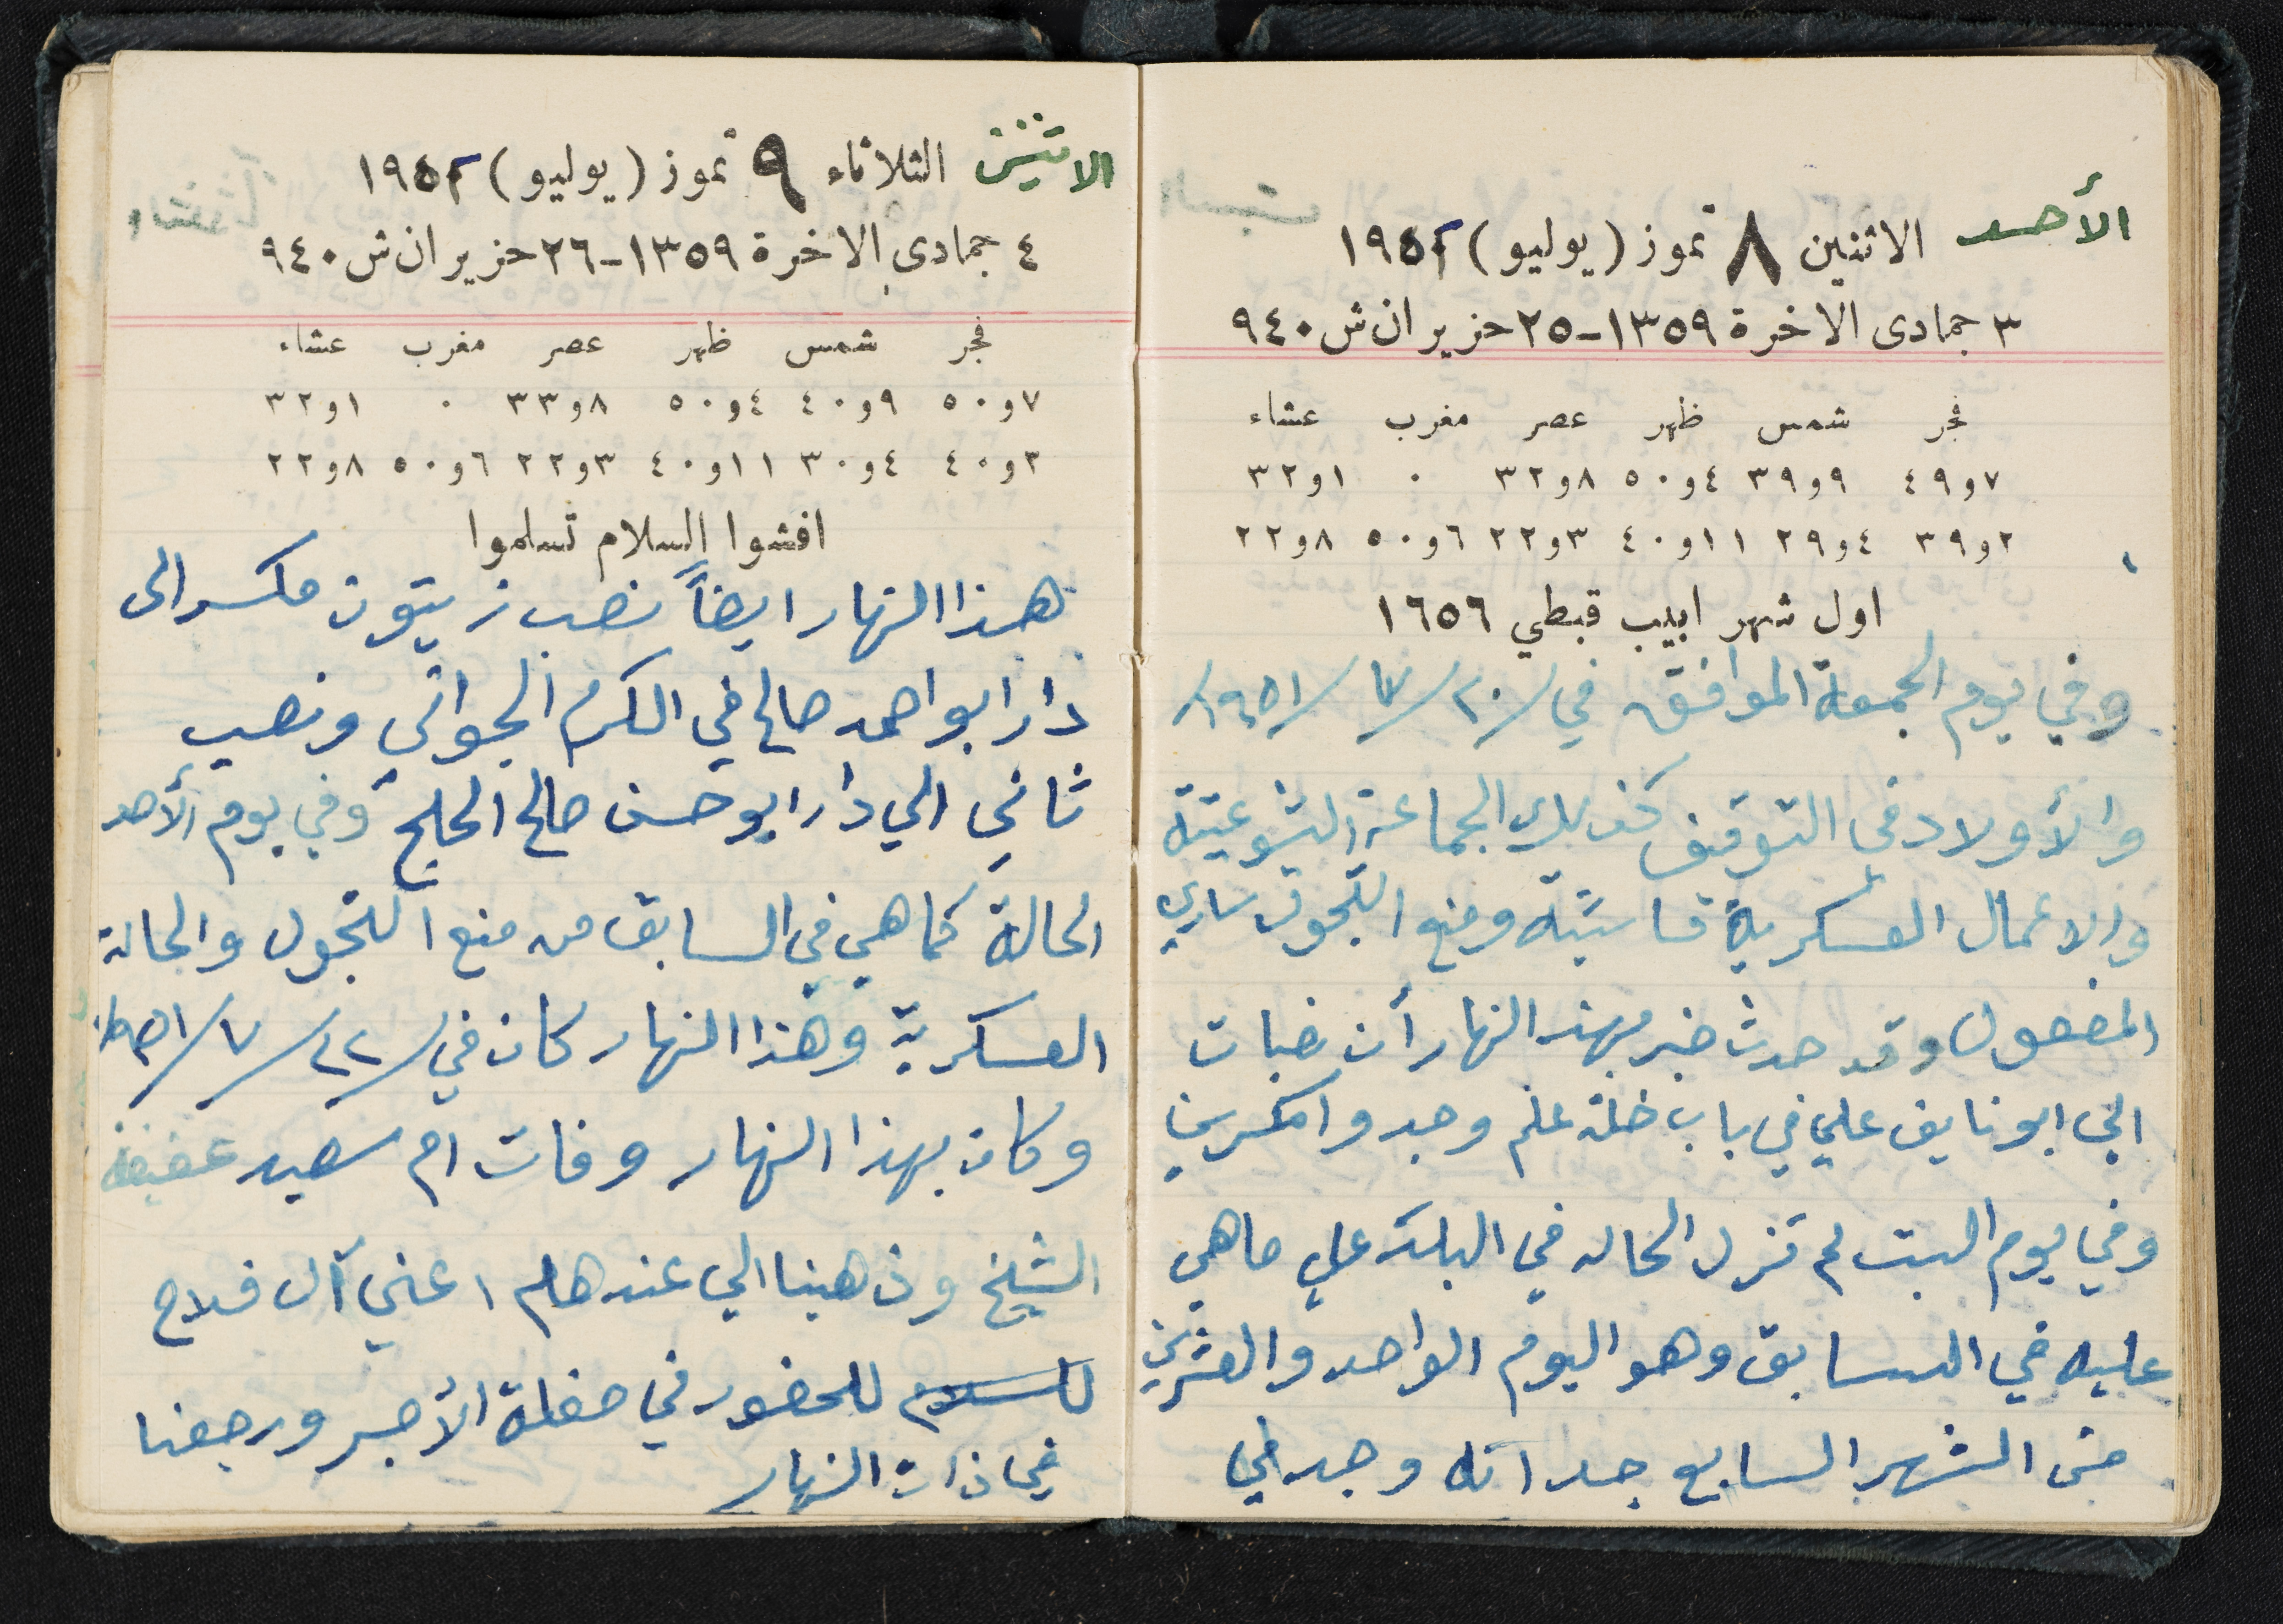 الأحد الاثنين ٨ تموز (يوليو) ١٩٥١
٣ جمادى الاخرة ١٣٥٩-٢٥ حزيران ش ٩٤٠
فجر شمس ظهر عصر مغرب عشاء
٧و٤٩ ٩و٣٩ ٤و٥٠ ٨و٣٢ ٠ ١و٣٢
٢و٣٩ ٤و٢٩ ١١و٤٠ ٣و٢٢ ٦و٥٠ ٨و٢٢
اول شهر ابيب قبطي ١٦٥٦
وفي يوم الجمعة الموافق في /٢٠/٧/١٩٥١/
والأولاد في التوقيف كذلك الجماعة الشوعيّة
والاعمال العسكرية قاسيّة ومنع التجول ساري
المفعول وقد حدث خبر بهذا النهار أن نصبات
الي ابو نايف علي في باب خلة علم وجدوا مكسرين
وفي يوم السبت لم تزل الحاله في البلد علي ما هي
عليه في السسابق وهو اليوم الواحد والعشرين
من الشهر السابع جد انه وجد لي
الاثنين الثلاثاء ٩ تموز (يوليو) ١٩٥١
٤ جمادى الاخرة ١٣٥٩-٢٦ حزيران ش ٩٤٠
فجر شمس ظهر عصر مغرب عشاء
٧و٥٠ ٩و٤٠ ٤و٥٠ ٨و٣٣ ٠ ١و٣٢
٢و٤٠ ٤و٣٠ ١١و٤٠ ٣و٢٢ ٦و٥٠ ٨و٢٢
افشوا السلام تسلموا
هذا النهار ايضاً نصب زيتون مكسر الى
دار ابو احمد صالح في الكرم الجواني ونصب
ثاني الي دار ابو حسن صالح الحلح وفي يوم الأحد
الحالة كما هي في السابق من منع التجول والحالة
العسكرية وهذا النهار كان في /٢٢/٧/١٩٥١
وكان بهذا النهار وفات ام سعيد عفيفة
الشيخ وذهبنا الي عندهم اعني آل فلاح
للسلام للحضور في حفلة الأجر ورجعنا
في ذات النهار